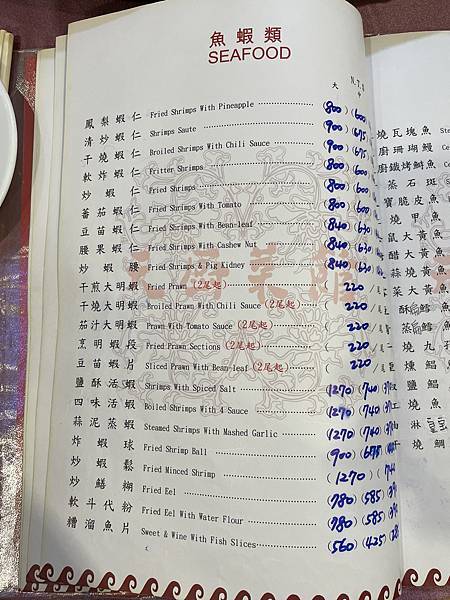 魚蝦類
SEAFOOD
大 N.T.$ 中
鳳梨蝦仁 Fried Shrimps With Pineapple (800) (600)
清炒蝦仁 Shrimps Saute (900) (675)
干燒蝦仁 Broiled Shrimps With Chili Sauce (900) (675)
軟炸蝦仁 Fritter Shrimps (800) (600)
炒蝦仁 Fried Shrimps (800) (600)
蕃茄蝦仁 Fried Shrimps With Tomato (800) (600)
豆苗蝦仁 Fried Shrimps With Bean-leaf (840) (630)
腰果蝦仁 Fried Shrimps With Cashew Nut (840) (630)
炒蝦腰 Fried Shrimps & Pig Kidney (840) (630)
干煎大明蝦 Fried Prawn (2尾起) ( 220 /尾
干燒大明蝦 Broiled Prawn With Chili Sauce (2尾起) ( 220 /尾
茄汁大明蝦 Prawn With Tomato Sauce (2尾起) ( 220 /尾
烹明蝦段 Fried Prawn Sections (2尾起) ( 220 /尾
豆苗蝦片 Sliced Prawn With Bean-leaf (2尾起) ( 220 /尾
鹽酥活蝦 Shrimps With Spiced Salt (1270) (940)
四味活蝦 Boiled Shrimps With 4 Sauce (1270) (940)
蒜泥蒸蝦 Steamed Shrimps With Mashed Garlic (1270) (940)
炸蝦球 Fried Shrimp Ball (900) (675)
炒蝦鬆 Fried Minced Shrimp (1270) (940
炒鱔糊 Fried Eel (780) (585)
軟斗代粉 Fried Eel With Water Flour (780) (585)
糟溜魚片 Sweet & Wine With Fish Slices (560) (425)
燒瓦塊魚
廚珊瑚鰻
廚鐵烤鯡魚
蒸石斑
寶脆皮魚
燒甲魚
鼠大黃
醋大黃
蒜燒黃
菜大黃